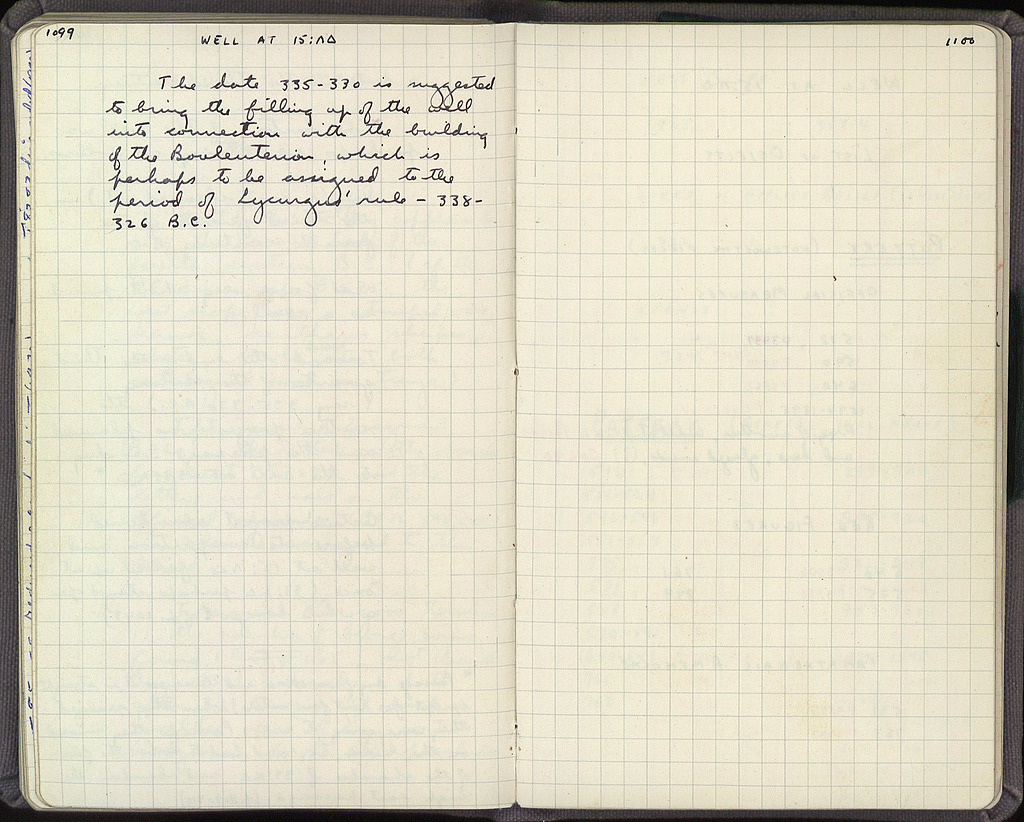 1099
WELL AT 15:ΛΔ
The date 335-330 is suggested
to bring the filling up of the well
into connection with the building
of the Bouleuterion, which is
perhaps to be assigned to the
period of Lycurgus' rule - 338-
326 B.C.
1100